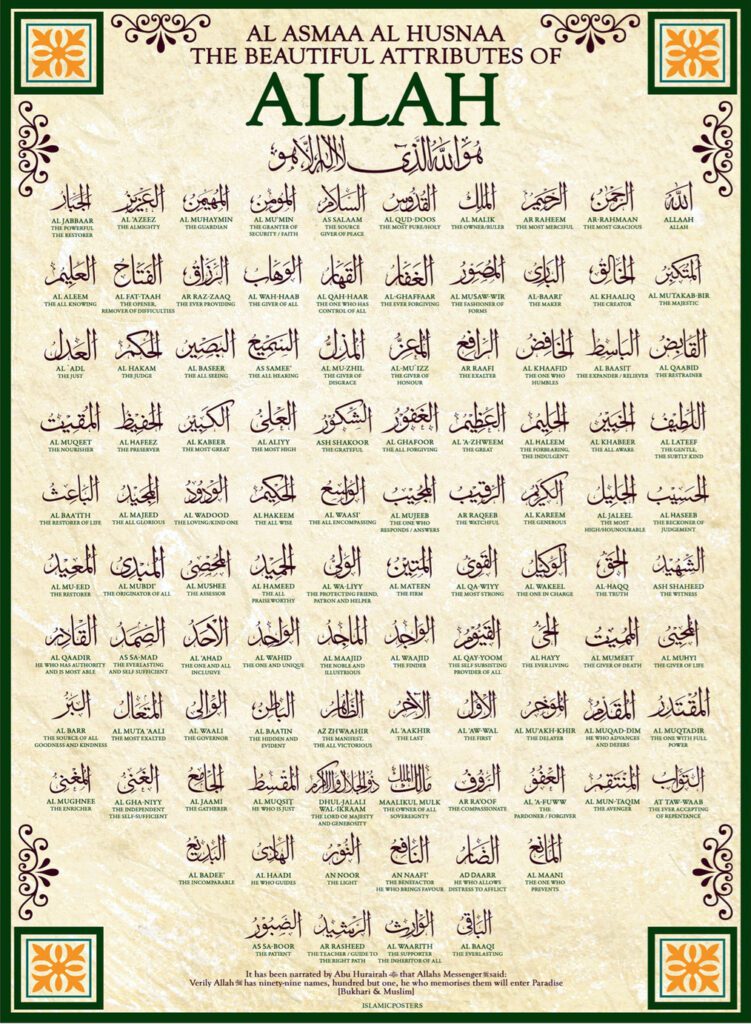 AL ASMAA AL HUSNAA
THE BEAUTIFUL ATTRIBUTES OF
ALLAH
هو الله الذي لا اله الا هو
الله
ALLAAH
ALLAH
الرحمن
AR-RAHMAAN
THE MOST GRACIOUS
الرحيم
AR RAHEEM
THE MOST MERCIFUL
الملك
AL MALIK
THE OWNER/RULER
القدوس
AL QUD-DOOS
THE MOST PURE/HOLY
السلام
AS SALAAM
THE SOURCE
GIVER OF PEACE
المؤمن
AL MU'MIN
THE GRANTER OF
SECURITY / FAITH
المهيمن
AL MUHAYMIN
THE GUARDIAN
العزيز
AL 'AZEEZ
THE ALMIGHTY
الجبار
AL JABBAAR
THE POWERFUL
THE RESTORER
المتكبر
AL MUTAKAB-BIR
THE MAJESTIC
الخالق
AL KHAALIQ
THE CREATOR
البارئ
AL-BAARI'
THE MAKER
المصور
AL MUSAW-WIR
THE FASHIONER OF
FORMS
الغفار
AL-GHAFFAAR
THE EVER FORGIVING
القهار
AL QAH-HAAR
THE ONE WHO HAS
CONTROL OF ALL
الوهاب
AL WAH-HAAB
THE GIVER OF ALL
الرزاق
AR RAZ-ZAAQ
THE EVER PROVIDING
الفتاح
AL FAT-TAAH
THE OPENER,
REMOVER OF DIFFICULTIES
العليم
AL ALEEM
THE ALL KNOWING
القابض
AL QAABID
THE RESTRAINER
الباسط
AL BAASIT
THE EXPANDER / RELIEVER
الخافض
AL KHAAFID
THE ONE WHO
HUMBLES
الرافع
AR RAAFI
THE EXALTER
المعز
AL-MU`IZZ
THE GIVER OF
HONOUR
المذل
AL MU-ZHIL
THE GIVER OF
DISGRACE
السميع
AS SAMEE'
THE ALL HEARING
البصير
AL BASEER
THE ALL SEEING
الحكم
AL HAKAM
THE JUDGE
العدل
AL `ADL
THE JUST
اللطيف
AL LATEEF
THE GENTLE,
THE SUBTLY KIND
الخبير
AL KHABEER
THE ALL AWARE
الحليم
AL HALEEM
THE FORBEARING,
THE INDULGENT
العظيم
AL 'A-ZHWEEM
THE GREAT
الغفور
AL GHAFOOR
THE ALL FORGIVING
الشكور
ASH SHAKOOR
THE GRATEFUL
العلي
AL ALIYY
THE MOST HIGH
الكبير
AL KABEER
THE MOST GREAT
الحفيظ
AL HAFEEZ
THE PRESERVER
المقيت
AL MUQEET
THE NOURISHER
الحسيب
AL HASEEB
THE RECKONER OF
JUDGEMENT
الجليل
AL JALEEL
THE MOST
HIGH/HOUNOURABLE
الكريم
AL KAREEM
THE GENEROUS
الرقيب
AR RAQEEB
THE WATCHFUL
المجيب
AL MUJEEB
THE ONE WHO
RESPONDS / ANSWERS
الواسع
AL WAASI`
THE ALL ENCOMPASSING
الحكيم
AL HAKEEM
THE ALL WISE
الودود
AL WADOOD
THE LOVING/KIND ONE
المجيد
AL MAJEED
THE ALL GLORIOUS
الباعث
AL BAA'ITH
THE RESTORER OF LIFE
الشهيد
ASH SHAHEED
THE WITNESS
الحق
AL-HAQQ
THE TRUTH
الوكيل
AL WAKEEL
THE ONE IN CHARGE
القوي
AL QA-WIYY
THE MOST STRONG
المتين
AL MATEEN
THE FIRM
الولي
AL WA-LIYY
THE PROTECTING FRIEND,
PATRON AND HELPER
الحميد
AL HAMEED
THE ALL
PRAISEWORTHY
المحصي
AL MUSHEE
THE ASSESSOR
المبدئ
AL MUBDI'
THE ORIGINATOR OF ALL
المعيد
AL MU-EED
THE RESTORER
المحيي
AL MUHYI
THE GIVER OF LIFE
المميت
AL MUMEET
THE GIVER OF DEATH
الحي
AL HAYY
THE EVER LIVING
القيوم
AL QAY-YOOM
THE SELF SUBSISTING
PROVIDER OF ALL
الواجد
AL WAAJID
THE FINDER
الماجد
AL MAAJID
THE NOBLE AND
ILLUSTRIOUS
الواحد
AL WAHID
THE ONE AND UNIQUE
الاحد
AL 'AHAD
THE ONE AND ALL
INCLUSIVE
الصمد
AS SA-MAD
THE EVERLASTING
AND SELF SUFFICIENT
القادر
AL QAADIR
HE WHO HAS AUTHORITY
AND IS MOST ABLE
المقتدر
AL MUQTADIR
THE ONE WITH FULL
POWER
المقدم
AL MUQAD-DIM
HE WHO ADVANCES
AND DEFERS
المؤخر
AL MU'AKH-KHIR
THE DELAYER
الاول
AL 'AW-WAL
THE FIRST
الآخر
AL 'AAKHIR
THE LAST
الظاهر
AZ ZHWAAHIR
THE MANIFEST,
THE ALL VICTORIOUS
الباطن
AL BAATIN
THE HIDDEN AND
EVIDENT
الوالي
AL WAALI
THE GOVERNOR
المتعال
AL MUTA 'AALI
THE MOST EXALTED
البر
AL BARR
THE SOURCE OF ALL
GOODNESS AND KINDNESS
التواب
AT TAW-WAAB
THE EVER ACCEPTING
OF REPENTANCE
المنتقم
AL MUN-TAQIM
THE AVENGER
العفو
AL 'A-FUWW
THE
PARDONER / FORGIVER
الرؤف
AR RA'OOF
THE COMPASSIONATE
مالك الملك
MAALIKUL MULK
THE OWNER OF ALL
SOVEREIGNTY
ذو الجلال والاكرام
DHUL-JALALI
WAL-IKRAAM
THE LORD OF MAJESTY
AND GENEROSITY
المقسط
AL MUQSIT
HE WHO IS JUST
الجامع
AL JAAMI
THE GATHERER
الغني
AL GHA-NIYY
THE INDEPENDENT
THE SELF-SUFFICIENT
المغني
AL MUGHNEE
THE ENRICHER
المانع
AL MAANI
THE ONE WHO
PREVENTS
الضار
AD DAARR
HE WHO ALLOWS
DISTRESS TO AFFLICT
النافع
AN NAAFI'
THE BENEFACTOR
HE WHO BRINGS FAVOUR
النور
AN NOOR
THE LIGHT
الهادي
AL HAADI
HE WHO GUIDES
البديع
AL BADEE'
THE INCOMPARABLE
الباقي
AL BAAQI
THE EVERLASTING
الوارث
AL WAARITH
THE SUPPORTER
THE INHERITOR OF ALL
الرشيد
AR RASHEED
THE TEACHER / GUIDE TO
THE RIGHT PATH
الصبور
AS SA-BOOR
THE PATIENT
It has been narrated by Abu Hurairah that Allahs Messenger said:
Verily Allah has ninety-nine names, hundred but one, he who memorises them will enter Paradise
[Bukhari & Muslim]
ISLAMICPOSTERS